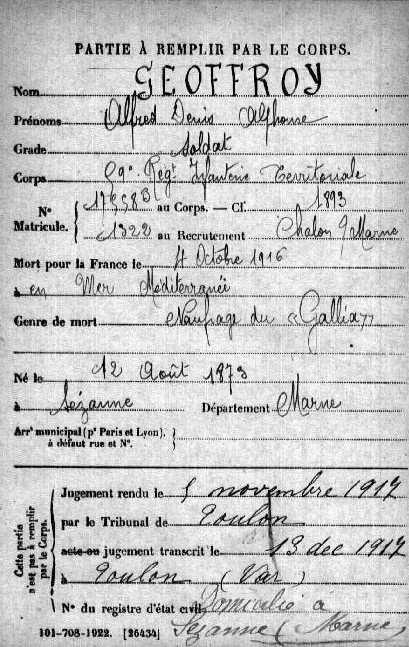 PARTIE À REMPLIR PAR LE CORPS.
Nom GEOFFROY
Prénoms Alfred Denis Alphonse
Grade Soldat
Corps 99e Regt Infanterie Territoriale
N° Matricule. { 17583 au Corps. — Cl. 1893
1322 au Recrutement Chalon s/Marne
Mort pour la France le 4 Octobre 1916
à en Mer Méditerranée
Genre de mort Naufrage du "Gallia"
Né le 12 Août 1873
à Sézanne Département Marne
Arrt municipal (pr Paris et Lyon),
à défaut rue et N°.
Cette partie n'est pas à remplir par le Corps.
Jugement rendu le 5 novembre 1917
par le Tribunal de Toulon
acte ou jugement transcrit le 13 dec 1917
à Toulon (Var)
N° du registre d'état civil Domicilié à
Sézanne (Marne)
101-708-1922. [26434]